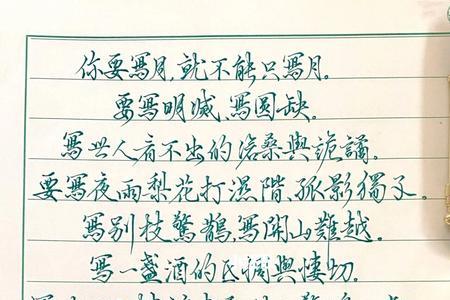 你要寫月,就不能只寫月。
要寫明滅,寫圓缺。
寫世人看不出的滄桑與詭譎。
要寫夜雨梨花打濕階、孤影獨孑。
寫別枝驚鵲,寫關山難越。
寫一盞酒的惆與悽切。